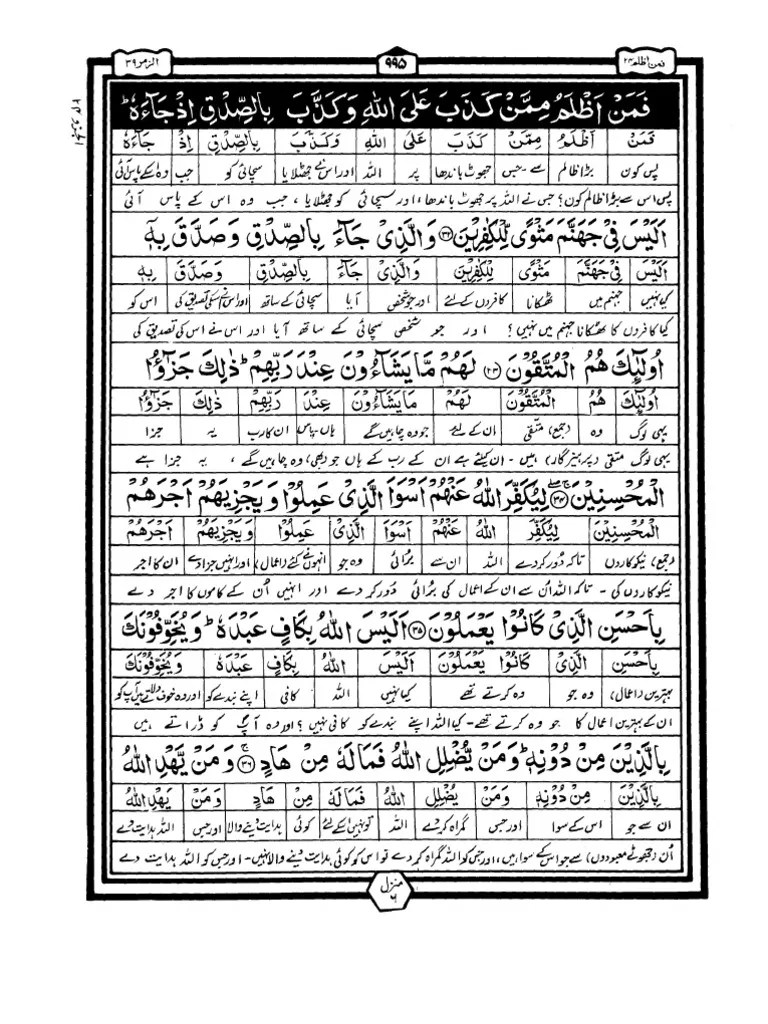 الزمر ٣٩
٩٩٥
فمن اظلم ٢٤
فَمَنْ اَظْلَمُ مِمَّنْ كَذَبَ عَلَى اللّٰهِ وَكَذَّبَ بِالصِّدْقِ اِذْ جَآءَهٗ ؕ
فَمَنْ اَظْلَمُ مِمَّنْ كَذَبَ عَلَى اللّٰهِ وَكَذَّبَ بِالصِّدْقِ اِذْ جَآءَهٗ
پس کون بڑا ظالم سے - جس جھوٹ باندھا پر اللہ اور اس نے جھٹلایا سچائی کو جب وہ اسکے پاس آئی
پس اس سے بڑا ظالم کون؟ جس نے اللہ پر جھوٹ باندھا، اور سچائی کو جھٹلایا، جب وہ اس کے پاس آئی
اَلَيْسَ فِيْ جَهَنَّمَ مَثْوًى لِّلْكٰفِرِيْنَ ﴿٣٢﴾ وَالَّذِيْ جَآءَ بِالصِّدْقِ وَصَدَّقَ بِهٖۤ
اَلَيْسَ فِيْ جَهَنَّمَ مَثْوًى لِّلْكٰفِرِيْنَ وَالَّذِيْ جَآءَ بِالصِّدْقِ وَصَدَّقَ بِهٖ
کیا نہیں جہنم میں ٹھکانا کافروں کے لئے اور جو شخص آیا سچائی کے ساتھ اور اس نے اسکی تصدیق کی اس کو
کیا کافروں کا ٹھکانا جہنم میں نہیں؟ اور جو شخص سچائی کے ساتھ آیا اور اس نے اس کی تصدیق کی
اُولٰٓئِكَ هُمُ الْمُتَّقُوْنَ ﴿٣٣﴾ لَهُمْ مَّا يَشَآءُوْنَ عِنْدَ رَبِّهِمْ ؕ ذٰلِكَ جَزٰٓؤُا
اُولٰٓئِكَ هُمُ الْمُتَّقُوْنَ لَهُمْ مَا يَشَآءُوْنَ عِنْدَ رَبِّهِمْ ذٰلِكَ جَزٰٓؤُا
یہی لوگ وہ (جمع) متقی ان کے لئے جو وہ چاہیں گے ہاں۔پاس ان کا رب یہ جزا
یہی لوگ متقی (پرہیزگار) ہیں۔ ان کیلئے ہے ان کے رب کے ہاں جو (بھی) وہ چاہیں گے، یہ جزا ہے
الْمُحْسِنِيْنَ ﴿٣٤﴾ لِيُكَفِّرَ اللّٰهُ عَنْهُمْ اَسْوَاَ الَّذِيْ عَمِلُوْا وَيَجْزِيَهُمْ اَجْرَهُمْ
الْمُحْسِنِيْنَ لِيُكَفِّرَ اللّٰهُ عَنْهُمْ اَسْوَاَ الَّذِيْ عَمِلُوْا وَيَجْزِيَهُمْ اَجْرَهُمْ
(جمع) نیکوکاروں تاکہ دُور کر دے اللہ ان سے بُرائی وہ جو انہوں نے کئے (اعمال) اور انہیں جزا دے ان کا اجر
نیکوکاروں کی۔ تاکہ اللہ اُن سے ان کے اعمال کی بُرائی دُور کر دے اور انہیں اُن کے کاموں کا اجر دے
بِاَحْسَنِ الَّذِيْ كَانُوْا يَعْمَلُوْنَ ﴿٣٥﴾ اَلَيْسَ اللّٰهُ بِكَافٍ عَبْدَهٗ ؕ وَيُخَوِّفُوْنَكَ
بِاَحْسَنِ الَّذِيْ كَانُوْا يَعْمَلُوْنَ اَلَيْسَ اللّٰهُ بِكَافٍ عَبْدَهٗ وَيُخَوِّفُوْنَكَ
بہترین (اعمال) وہ جو وہ کرتے تھے کیا نہیں اللہ کافی اپنے بندے کو اور وہ خوف دلاتے ہیں آپ کو
ان کے بہترین اعمال کا جو وہ کرتے تھے۔ کیا اللہ اپنے بندے کو کافی نہیں؟ اور وہ آپ کو ڈراتے ہیں
بِالَّذِيْنَ مِنْ دُوْنِهٖ ؕ وَمَنْ يُّضْلِلِ اللّٰهُ فَمَا لَهٗ مِنْ هَادٍ ﴿٣٦﴾ وَمَنْ يَّهْدِ اللّٰهُ
بِالَّذِيْنَ مِنْ دُوْنِهٖ وَمَنْ يُّضْلِلِ اللّٰهُ فَمَا لَهٗ مِنْ هَادٍ وَمَنْ يَهْدِ اللّٰهُ
ان سے جو اس کے سوا اور جس گمراہ کر دے اللہ تو نہیں اسکے لئے کوئی ہدایت دینے والا اور جس اللہ ہدایت دے
اُن (جھوٹے معبودوں) سے جو اس کے سوا ہیں، اور جس کو اللہ گمراہ کر دے تو اس کو کوئی ہدایت دینے والا نہیں۔ اور جس کو اللہ ہدایت دے
منزل
٦